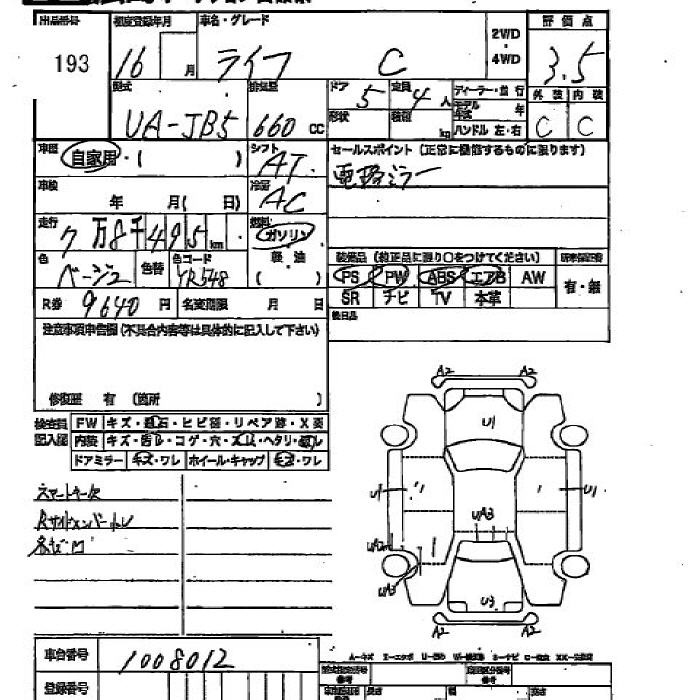 出品番号 初度登録年月 車名・グレード 2WD・4WD 評価点
193 16 月 ライフ C 3.5
型式 排気量 ドア 5 定員 4 人 ディーラー・並行
外装 内装
UA-JB5 660 cc 形状 積載 kg モデル年式 年
ハンドル 左・右 C C
車歴 自家用・( ) シフト AT セールスポイント (正常に機能するものに限ります)
電格ミラー
車検 年 月 ( 日) 冷房 AC
走行 7万8千495km 燃料 ガソリン
軽油 ( )
色 ベージュ 色替 色コード YR548
装備品 (純正品に限り○をつけてください)
PS PW ABS エアB AW 有・無
SR ナビ TV 本革
R券 9640 円 名変期限 月 日 後日品
注意事項申告欄 (不具合内容等は具体的に記入して下さい)
修復歴 有 (箇所 )
検査員記入欄 FW キズ・飛石・ヒビ・リペア跡・X要
内装 キズ・コゲ・穴・ヘタリ
ドアミラー キズ・ワレ ホイール・キャップ キズ・ワレ
スマートキー欠
A2 A2
U1
U1 U1
UA3
UA3
U3
A2 A2
A-キズ
車台番号 1008012
登録番号